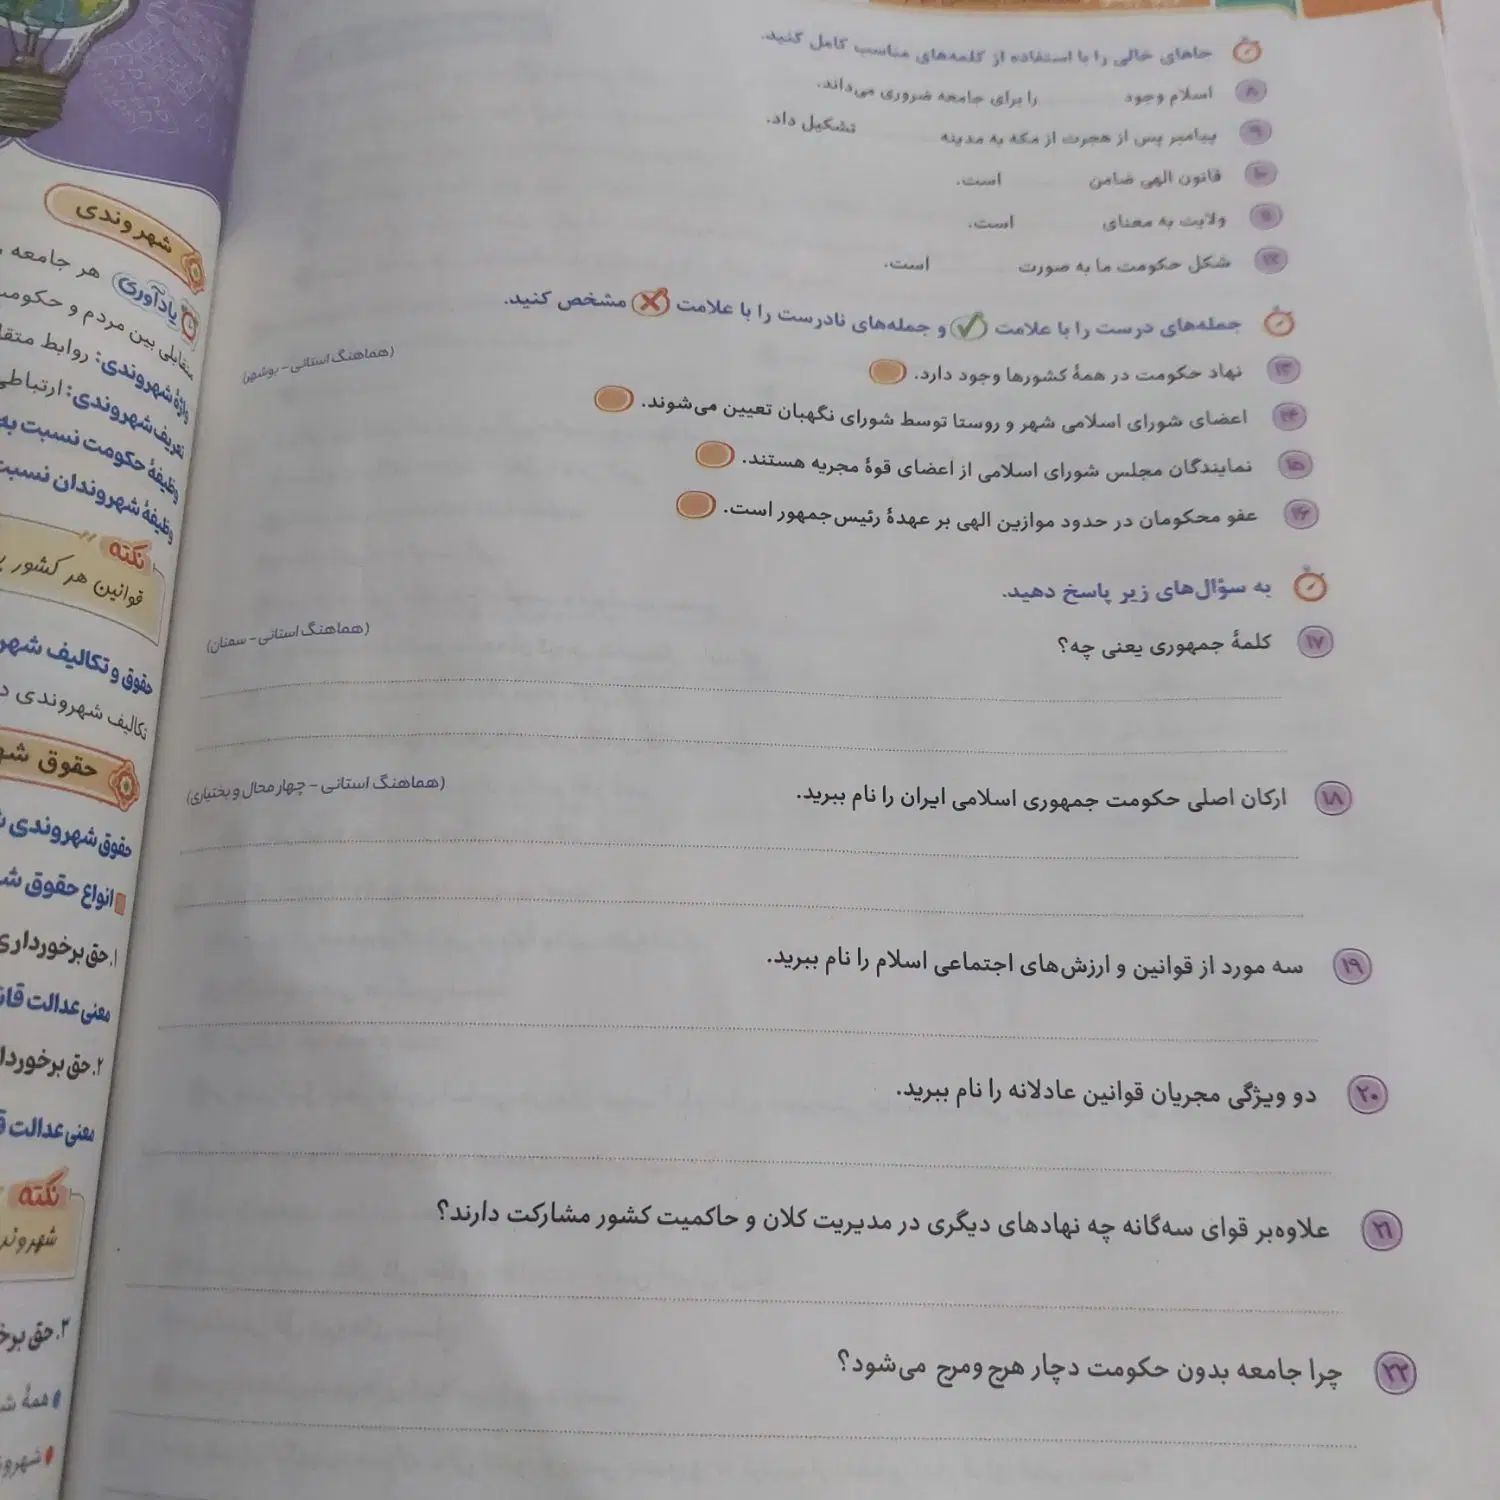 جاهای خالی را با استفاده از کلمه‌های مناسب کامل کنید.
۸ اسلام وجود را برای جامعه ضروری می‌داند.
۹ پیامبر پس از هجرت از مکه به مدینه تشکیل داد.
۱۰ قانون الهی ضامن است.
۱۱ ولایت به معنای است.
۱۲ شکل حکومت ما به صورت است.
جمله‌های درست را با علامت و جمله‌های نادرست را با علامت مشخص کنید.
۱۳ نهاد حکومت در همهٔ کشورها وجود دارد. (هماهنگ استانی - بوشهر)
۱۴ اعضای شورای اسلامی شهر و روستا توسط شورای نگهبان تعیین می‌شوند.
۱۵ نمایندگان مجلس شورای اسلامی از اعضای قوهٔ مجریه هستند.
۱۶ عفو محکومان در حدود موازین الهی بر عهدهٔ رئیس‌جمهور است.
به سؤال‌های زیر پاسخ دهید.
۱۷ کلمهٔ جمهوری یعنی چه؟ (هماهنگ استانی - سمنان)
۱۸ ارکان اصلی حکومت جمهوری اسلامی ایران را نام ببرید. (هماهنگ استانی - چهارمحال و بختیاری)
۱۹ سه مورد از قوانین و ارزش‌های اجتماعی اسلام را نام ببرید.
۲۰ دو ویژگی مجریان قوانین عادلانه را نام ببرید.
۲۱ علاوه‌بر قوای سه‌گانه چه نهادهای دیگری در مدیریت کلان و حاکمیت کشور مشارکت دارند؟
۲۲ چرا جامعه بدون حکومت دچار هرج ومرج می‌شود؟
شهروندی
یادآوری هر جامعه
متقابلی بین مردم و حکومت
واژهٔ شهروندی: روابط
تعریف شهروندی: ارتباطی
وظیفهٔ حکومت نسبت به
وظیفهٔ شهروندان نسبت
نکته
قوانین هر کشور
حقوق و تکالیف
تکالیف شهروندی
حقوق
حقوق شهروندی
انواع حقوق
۱. حق برخورداری
معنی عدالت
۲. حق
معنی عدالت
نکته
۳. حق
همهٔ